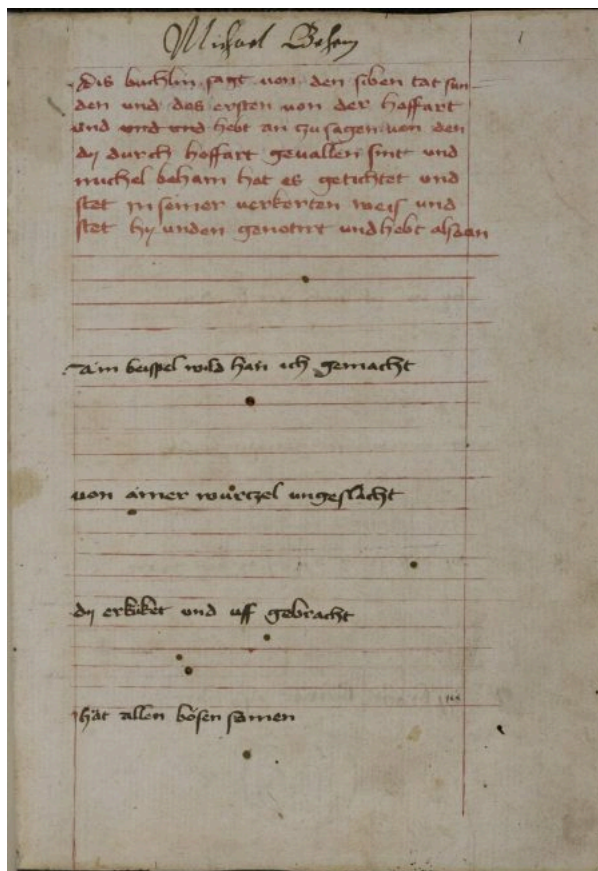 Michael Beham
1
Dis buchlin sagt von den siben tat sun-
den und des ersten von der hoffart
und und und hebt an zu sagen von den
dy durch hoffart gevallen sint und
michel beham hat es getichtet und
stet in seiner verkerten weis und
stet hy unden genotirt und hebt alsaan
Ain beispel wild han ich gemacht
von ainer wurtzel ungeslacht
dy erkuket und uff gebracht
hat allen bosen samen